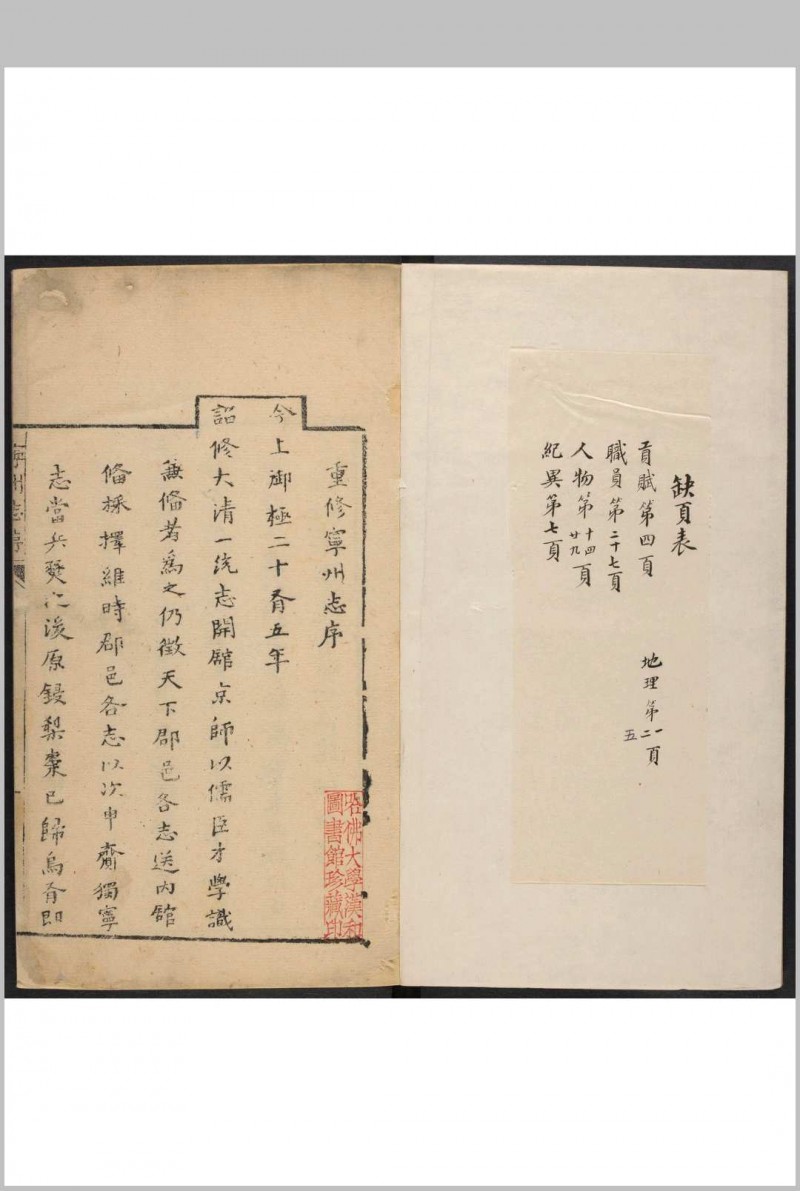 缺頁表
貢賦第四頁
職員第二十七頁
人物第十四廿九頁
紀異第七頁
地理第一二五頁
重修寧州志序
今
上御極二十有五年
詔修大清一統志開館京師以儒臣才學識
兼備者爲之仍徵天下郡邑各志送内館
備採擇維時郡邑各志以次申齎獨寧
志當兵燹之後原鋟梨棗已歸烏有即
寧州志序
哈佛大學漢和
圖書館珍藏印